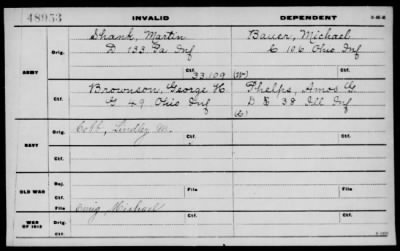 48953
INVALID DEPENDENT
Shank, Martin Bauer, Michael
Orig. D 133 Pa Inf C 106 Ohio Inf
ARMY Ctf. 33.109 (W)
Brownson, George H Phelps, Amos G
G 49 Ohio Inf D & 38 Ill Inf
Ctf.
Cobb, Lindley M.
Orig.
NAVY
Ctf.
Rej.
OLD WAR File
Ctf.
Emig Michael
WAR OF 1812 File Ctf.